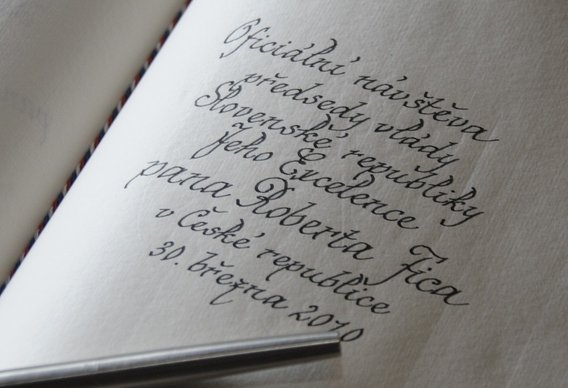 Oficiální návštěva
předsedy vlády
Slovenské republiky
Jeho Excelence
pana Roberta Fica
v České republice
30. března 2010